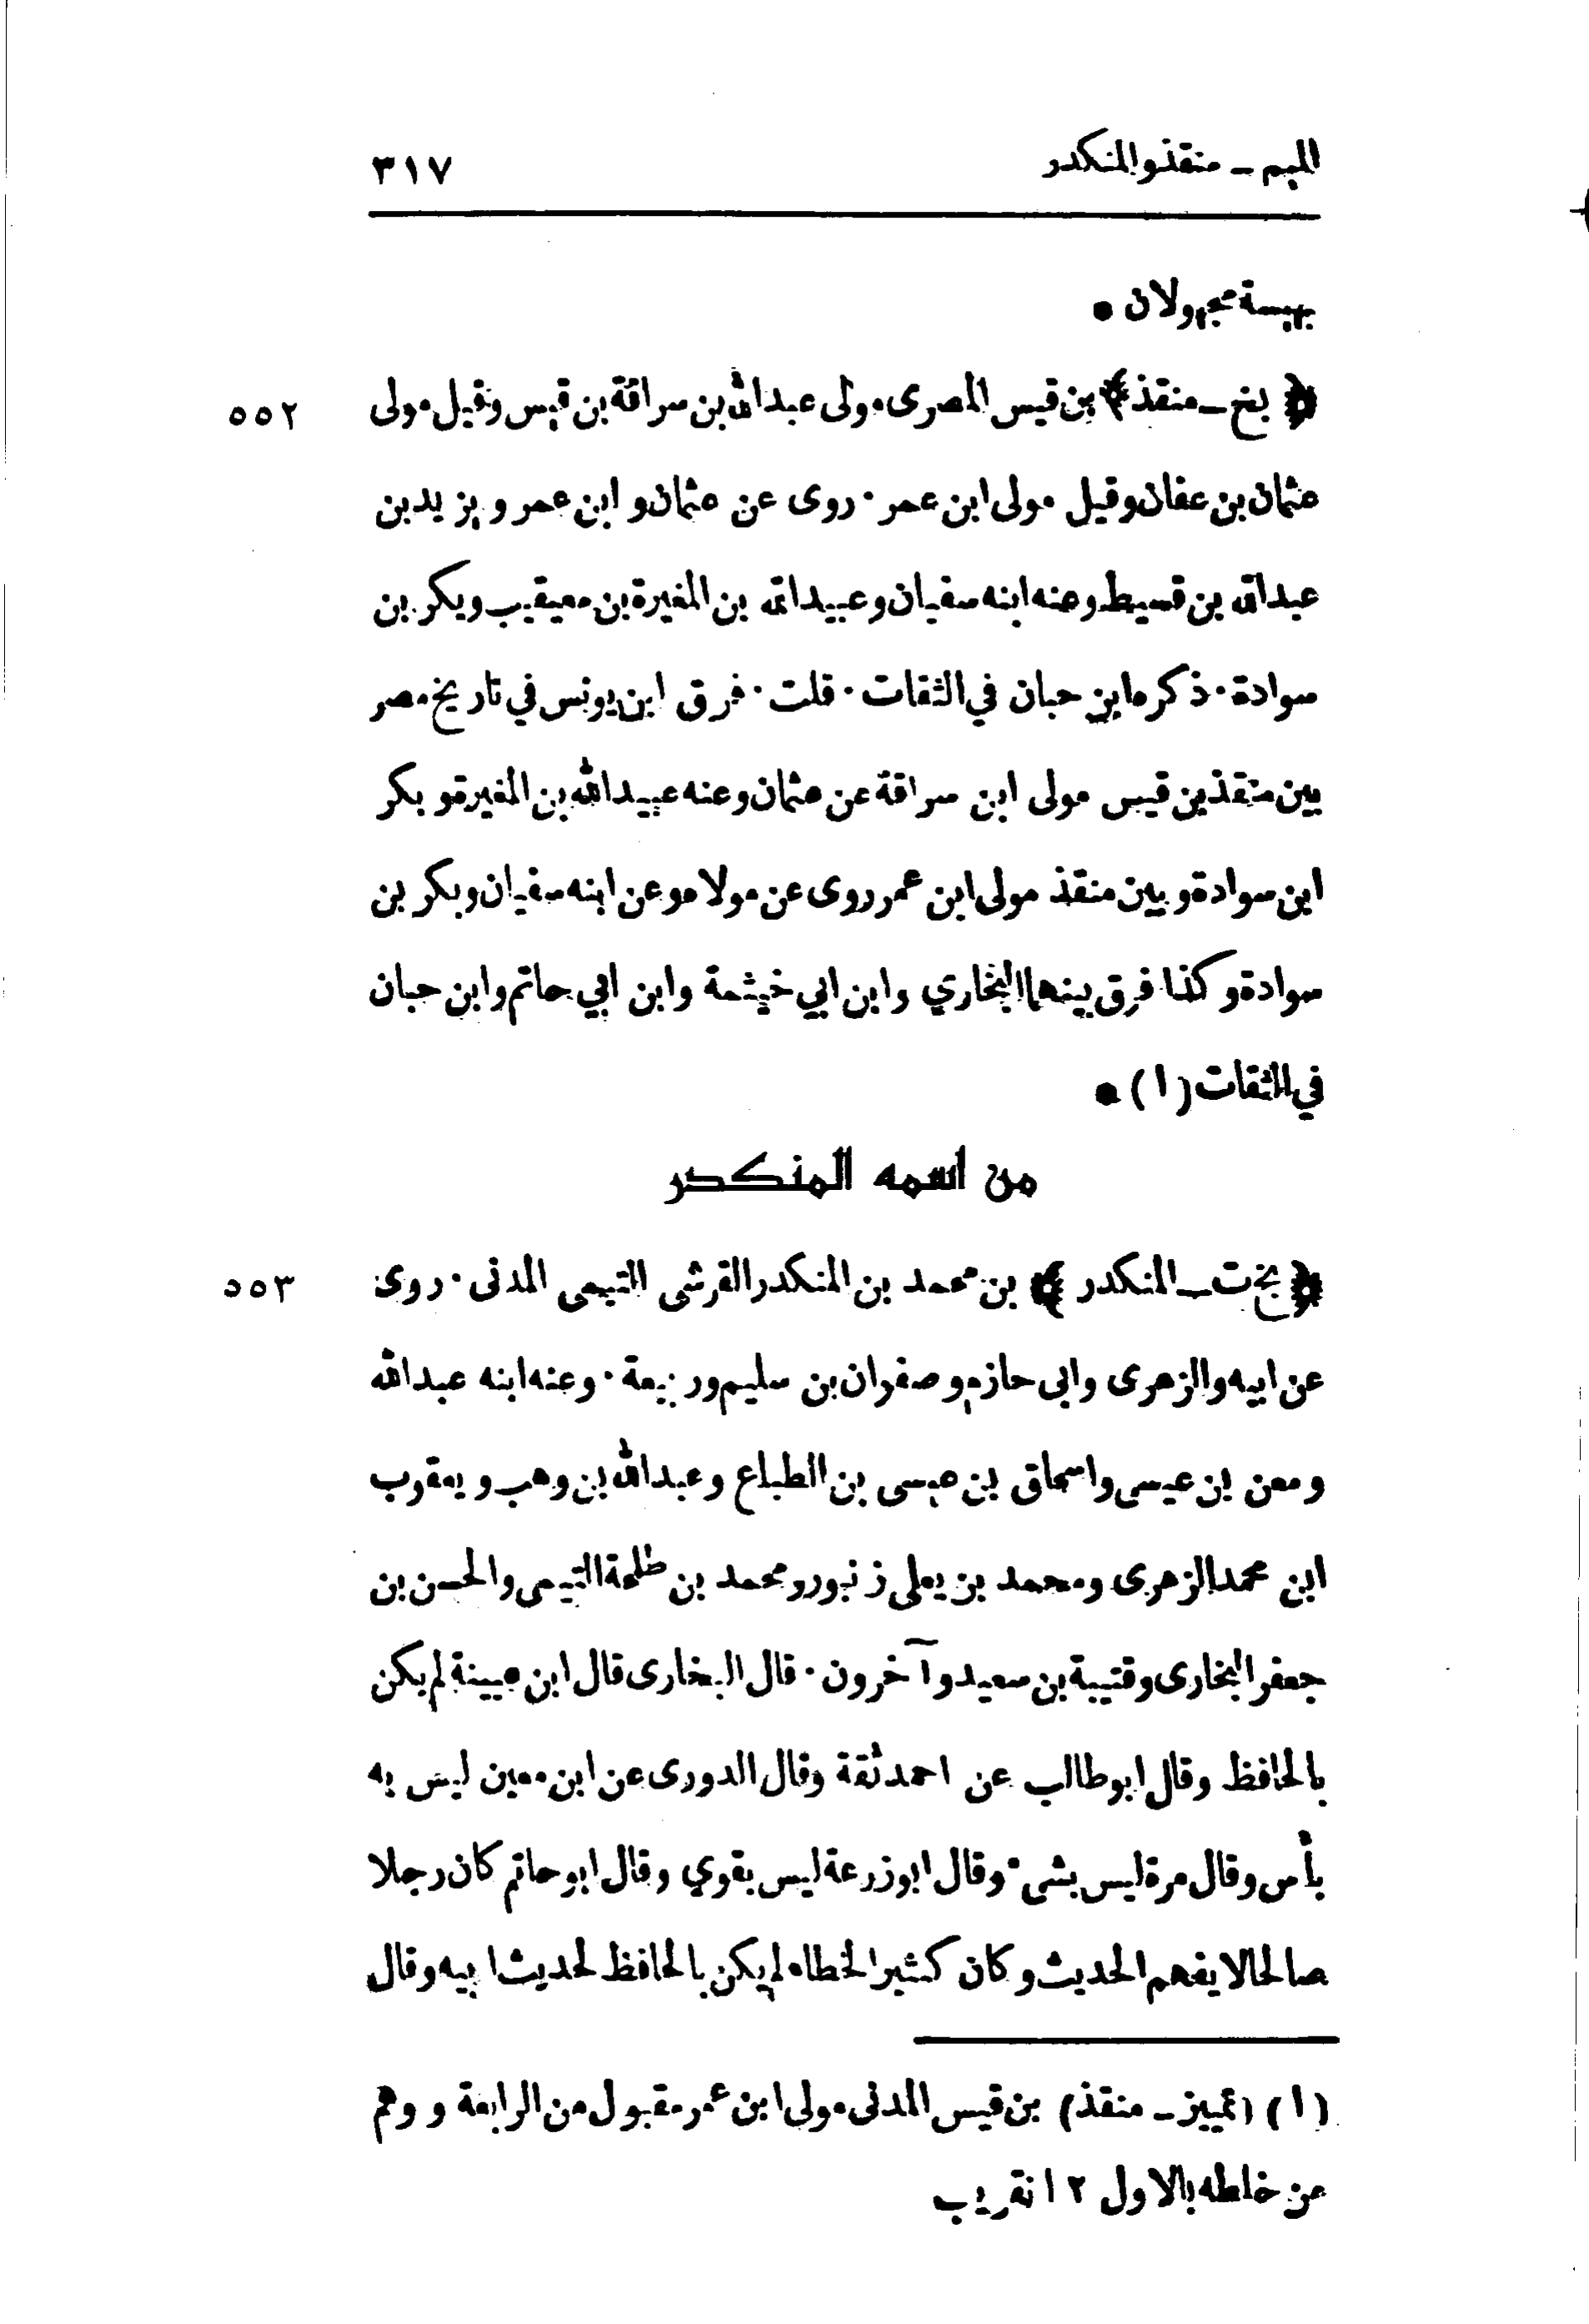 الميم ــ منقذ والمنكدر
٣١٧
بهيسة مجهولان *
﴿ بخ ــ منقذ ﴾ بن قيس المصرى مولى عبدالله بن سراقة بن قيس وقيل مولى
٥٥٢
عثمان بن عفان وقيل مولى ابن عمر · روى عن عثمان وابن عمر ويزيد بن
عبدالله بن قسيط وعنه ابنه سفيان وعبيدالله بن المغيرة بن معيقيب وبكر بن
سوادة · ذكره ابن حبان في الثقات · قلت · فرق ابن يونس في تاريخ مصر
بين منقذ بن قيس مولى ابن سراقة عن عثمان وعنه عبيدالله بن المغيرة وبكر
ابن سوادة وبين منقذ مولى ابن عمر روى عن مولاه وعن ابنه سفيان وبكر بن
سوادة وكذا فرق بينهما البخاري وابن ابي خيثمة وابن ابي حاتم وابن حبان
في الثقات (١) *
من اسمه المنكدر
﴿ بخ ت ــ المنكدر ﴾ بن محمد بن المنكدر القرشى التيمى المدنى · روى
٥٥٣
عن ابيه والزهرى وابى حازم وصفوان بن سليم وربيعة · وعنه ابنه عبدالله
ومعن بن عيسى واسحاق بن عيسى بن الطباع وعبدالله بن وهب ويعقوب
ابن محمد الزهرى ومحمد بن يعلى زنبور ومحمد بن طلحة التيمى والحسن بن
جعفر البخارى وقتيبة بن سعيد وآخرون · قال البخارى قال ابن عيينة لم يكن
بالحافظ وقال ابو طالب عن احمد ثقة وقال الدورى عن ابن معين ليس به
بأس وقال مرة ليس بشى · وقال ابو زرعة ليس بقوي وقال ابو حاتم كان رجلا
صالحا لا يفهم الحديث وكان كثير الخطاء لم يكن بالحافظ لحديث ابيه وقال
(١) (تمييز ــ منقذ) بن قيس المدنى مولى ابن عمر مقبول من الرابعة ووهم
من خلطه بالاول ١٢ تقريب